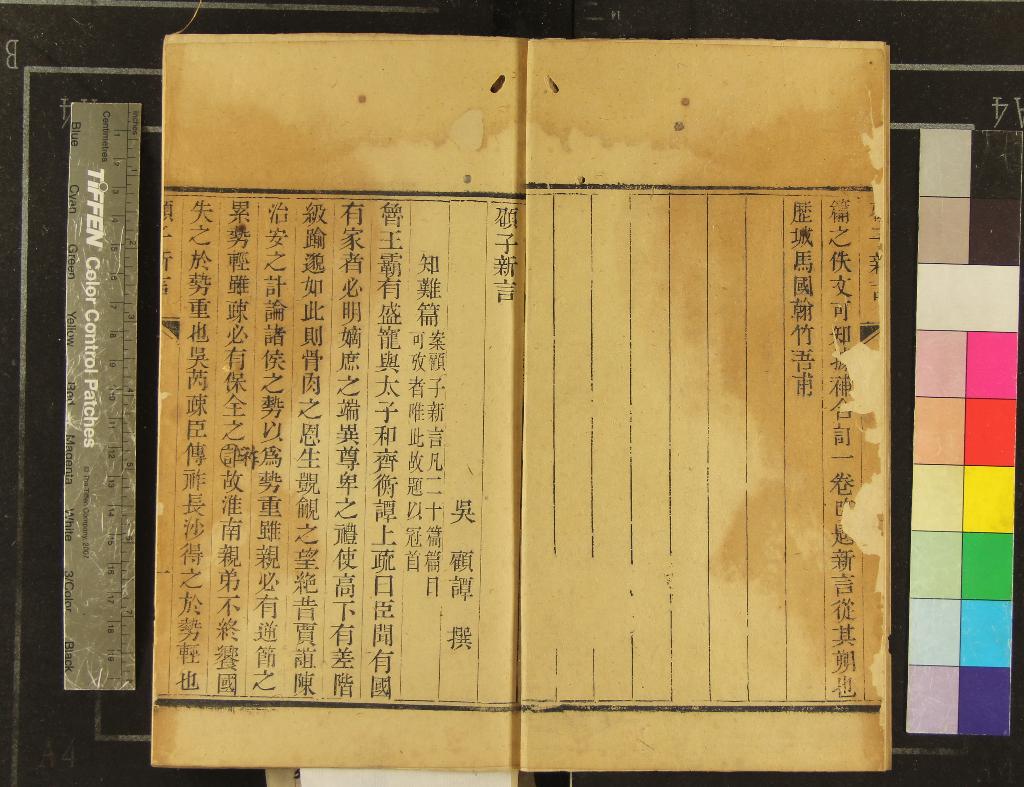 篇之佚文可知 一卷 新言從其朔也
歷城馬國翰竹吾甫
顧子新言
吳 顧譚 撰
知難篇
案顧子新言凡二十篇篇目
可攷者唯此故題以冠首
魯王霸有盛寵與太子和齊衡譚上疏曰臣聞有國
有家者必明嫡庶之端異尊卑之禮使高下有差階
級踰邈如此則骨肉之恩生覬覦之望絶昔賈誼陳
治安之計論諸侯之勢以爲勢重雖親必有逆節之
累勢輕雖疎必有保全之祚故淮南親弟不終饗國
失之於勢重也吳芮疎臣傳祚長沙得之於勢輕也
顧子新言
一
TIFFEN Color Control Patches
© The Tiffen Company, 2007
Centimetres
Inches
Blue Cyan Green Yellow Red Magenta White 3/Color Black
B
A4
A4